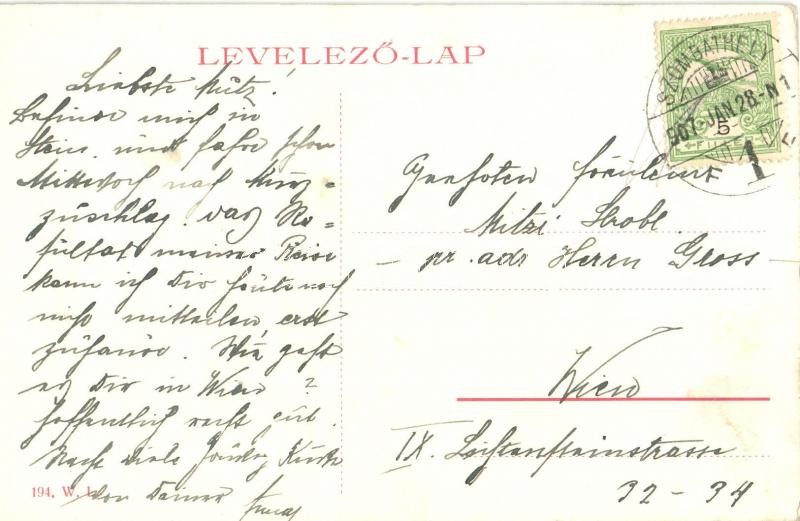 LEVELEZŐ-LAP
SZOMBATHELY
907 JAN 28 N 1
5
FILLER
Liebste Mütz!
Befinde mich in
Stein und fahre schon
Mittwoch nach Mürz-
zuschlag. das Re-
sultat meiner Reise
kann ich Dir heute noch
nicht mitteilen, erst
zuhause. Wie geht
es Dir in Wien?
hoffentlich recht gut.
viele Küsse
von Deiner
194, W. L.
Geehrten Fräulein
Mitzi Strobl
- pr. adr Herrn Gross -
Wien
IX. Lichtensteinstrasse
32-34